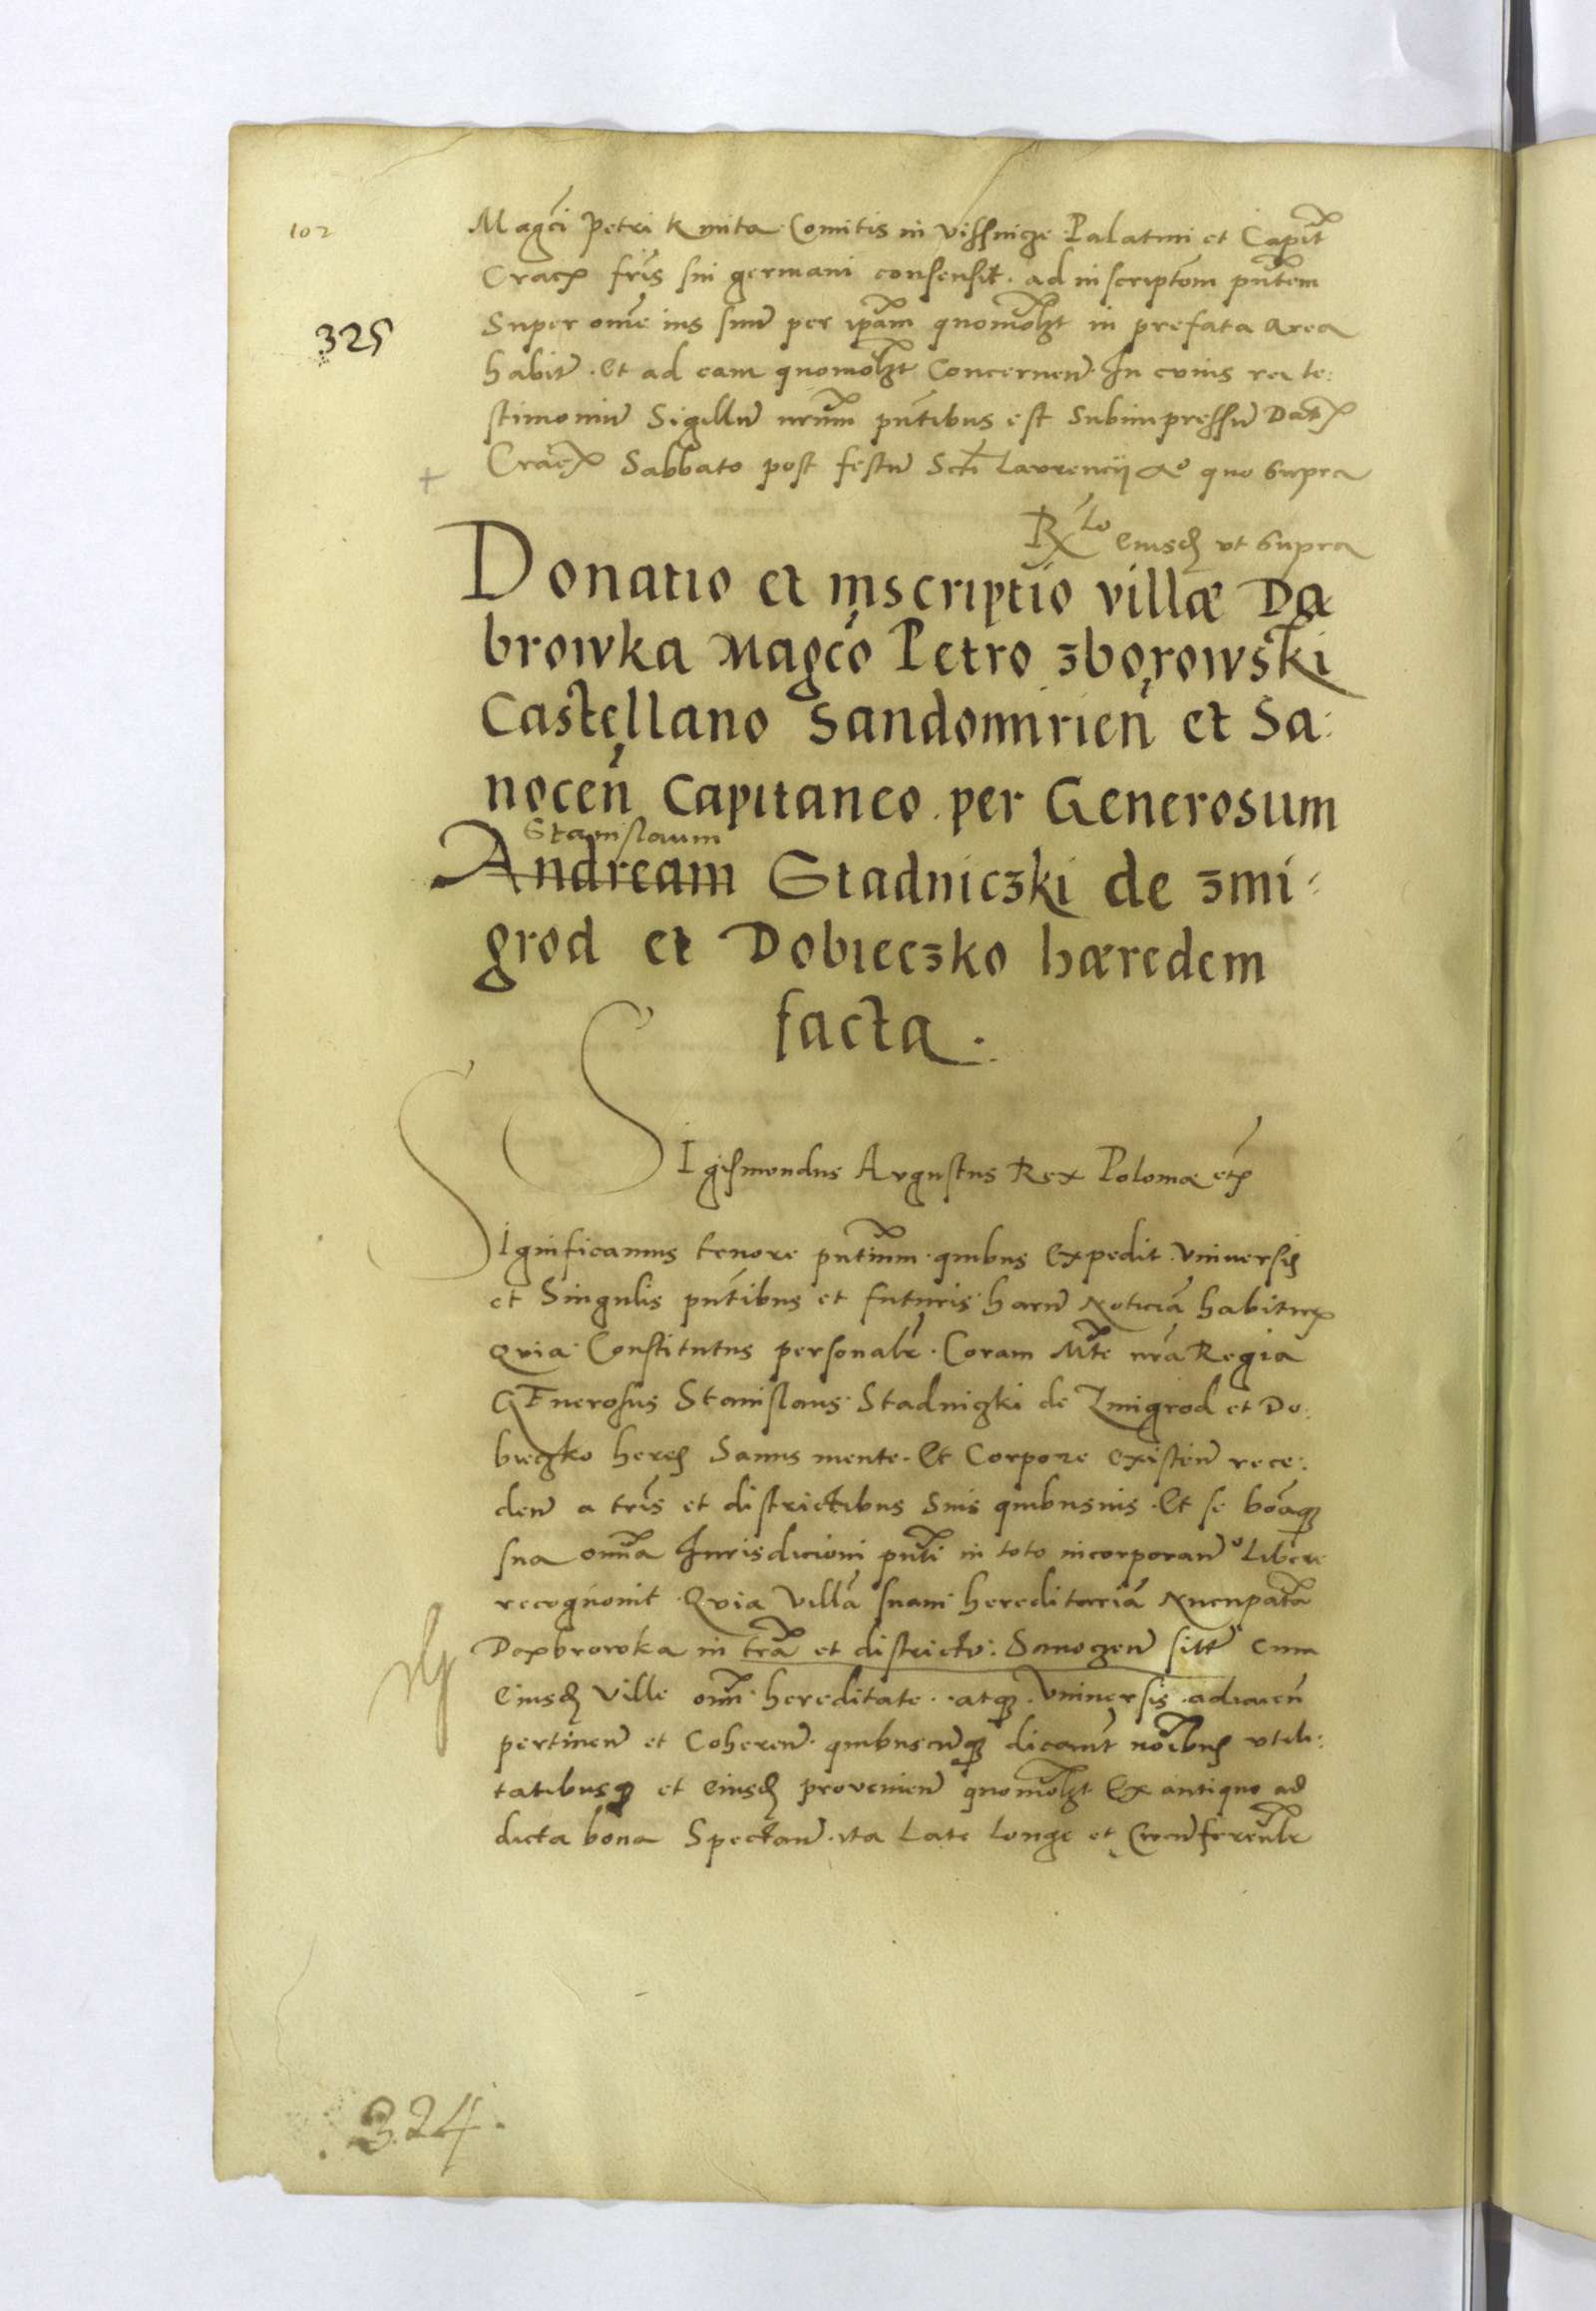 102
Magci Petri Kmita Comitis in Visnicze Palatini et Capit
Crac fris sui germani consensit. ad inscriptom pntem
325
Super ome ius suu per ipam quomolzt in prefata area
habit. Et ad eam quomolzt Concernen. In cuius rei te:
stimoniu Sigillu nrum pntibus est Subimpressu Dat
Crac Sabbato post festu Scti Laurencij Ao quo supra
Rlo eiusd ut supra
Donatio et inscriptio villæ Da
browka Magco Petro Zborowski
Castellano Sandomirien et Sa:
nocen Capitaneo per Generosum
Stanislaum
Andream Stadniczki de Zmi
grod et Dobieczko hæredem
facta.
Sigismondus Augustus Rex Poloniæ etc
Significamus tenore pntium quibus Expedit Universis
et Singulis pntibus et futuris haru Noticia habitur
Quia Constitutus personalr. Coram Mte nra Regia
GEnerosus Stanislaus Stadniczki de Zmigrod et Do:
bieczko heres Sanus mente. Et Corpore existen rece:
den a tris et districtibus Suis quibusuis. Et se bonaq
sua omnia Jurisdicioni pnti in toto incorporan Libere
recognouit Quia Villa suam hereditaria Nucupata
Daxbrowka in tra et districtu: Sanoczen sitt cum
Eiusd Ville omi hereditate. atq. Uniuersis adiacen
pertinen et Coheren quibuscuq dicant noibus utili:
tatibusq et Eiusd provenien quomolzt Ex antiquo ad
dicta bona Spectan. ita Late Longe et Circuferentr
.324.